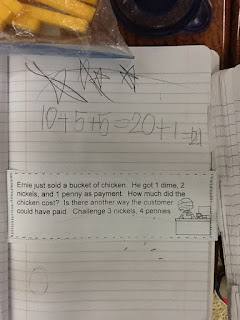 10+5+5=20+1=21
Ernie just sold a bucket of chicken. He got 1 dime, 2
nickels, and 1 penny as payment. How much did the
chicken cost? Is there another way the customer
could have paid. Challenge 3 nickels, 4 pennies